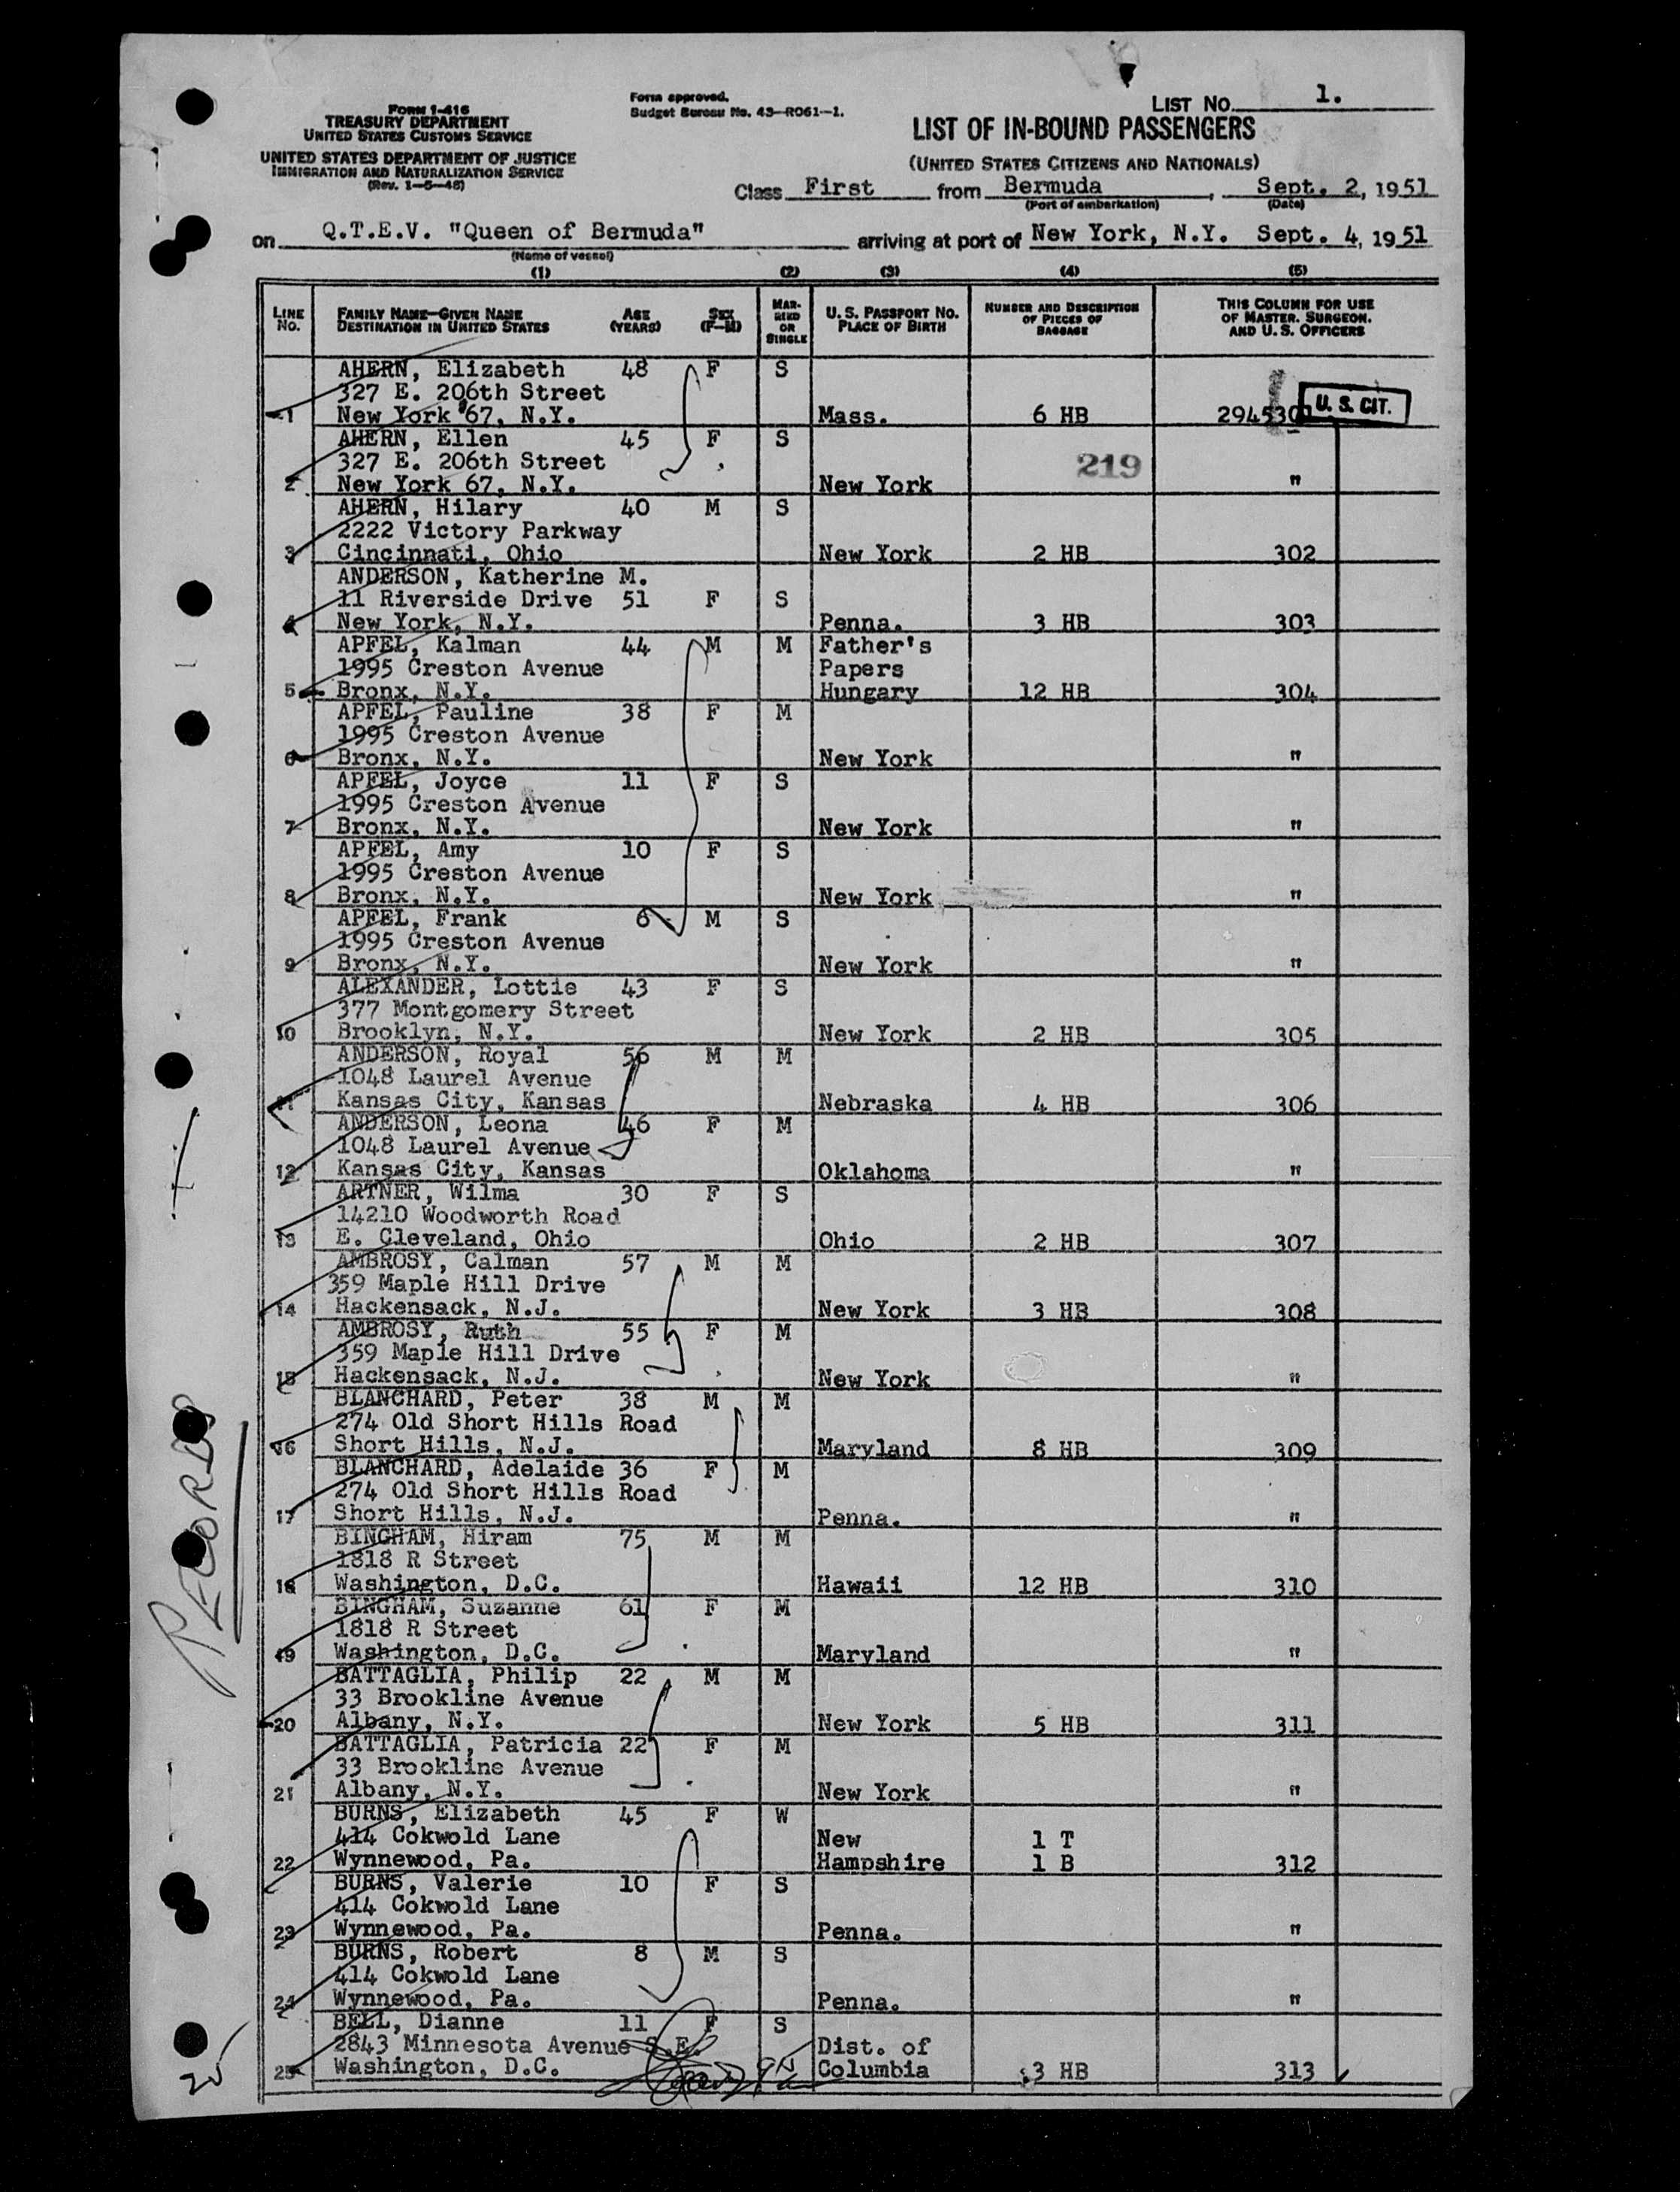 LIST NO. 1.
FORM I-416
TREASURY DEPARTMENT
UNITED STATES CUSTOMS SERVICE
UNITED STATES DEPARTMENT OF JUSTICE
IMMIGRATION AND NATURALIZATION SERVICE
(Rev. 1-5-48)
Form approved.
Budget Bureau No. 43-R061-1.
LIST OF IN-BOUND PASSENGERS
(UNITED STATES CITIZENS AND NATIONALS)
Class First from Bermuda, Sept. 2, 1951
(Port of embarkation) (Date)
on Q.T.E.V. "Queen of Bermuda" arriving at port of New York, N.Y. Sept. 4, 1951
(Name of vessel)
(1) (2) (3) (4) (5)
LINE NO. FAMILY NAME—GIVEN NAME DESTINATION IN UNITED STATES AGE (YEARS) SEX (F—M) MARRIED OR SINGLE U. S. PASSPORT NO. PLACE OF BIRTH NUMBER AND DESCRIPTION OF PIECES OF BAGGAGE THIS COLUMN FOR USE OF MASTER, SURGEON, AND U. S. OFFICERS
AHERN, Elizabeth 48 F S
327 E. 206th Street
1 New York 67, N.Y. Mass. 6 HB 2945301 U. S. CIT.
AHERN, Ellen 45 F S
327 E. 206th Street 219
2 New York 67, N.Y. New York "
AHERN, Hilary 40 M S
2222 Victory Parkway
3 Cincinnati, Ohio New York 2 HB 302
ANDERSON, Katherine M.
11 Riverside Drive 51 F S
4 New York, N.Y. Penna. 3 HB 303
APFEL, Kalman 44 M M Father's
1995 Creston Avenue Papers
5 Bronx, N.Y. Hungary 12 HB 304
APFEL, Pauline 38 F M
1995 Creston Avenue
6 Bronx, N.Y. New York "
APFEL, Joyce 11 F S
1995 Creston Avenue
7 Bronx, N.Y. New York "
APFEL, Amy 10 F S
1995 Creston Avenue
8 Bronx, N.Y. New York "
APFEL, Frank 6 M S
1995 Creston Avenue
9 Bronx, N.Y. New York "
ALEXANDER, Lottie 43 F S
377 Montgomery Street
10 Brooklyn, N.Y. New York 2 HB 305
ANDERSON, Royal 56 M M
1048 Laurel Avenue
11 Kansas City, Kansas Nebraska 4 HB 306
ANDERSON, Leona 46 F M
1048 Laurel Avenue
12 Kansas City, Kansas Oklahoma "
ARTNER, Wilma 30 F S
14210 Woodworth Road
13 E. Cleveland, Ohio Ohio 2 HB 307
AMBROSY, Calman 57 M M
359 Maple Hill Drive
14 Hackensack, N.J. New York 3 HB 308
AMBROSY, Ruth 55 F M
359 Maple Hill Drive
15 Hackensack, N.J. New York "
BLANCHARD, Peter 38 M M
274 Old Short Hills Road
16 Short Hills, N.J. Maryland 8 HB 309
BLANCHARD, Adelaide 36 F M
274 Old Short Hills Road
17 Short Hills, N.J. Penna. "
BINGHAM, Hiram 75 M M
1818 R Street
18 Washington, D.C. Hawaii 12 HB 310
BINGHAM, Suzanne 61 F M
1818 R Street
19 Washington, D.C. Maryland "
BATTAGLIA, Philip 22 M M
33 Brookline Avenue
20 Albany, N.Y. New York 5 HB 311
BATTAGLIA, Patricia 22 F M
33 Brookline Avenue
21 Albany, N.Y. New York "
BURNS, Elizabeth 45 F W
414 Cokwold Lane New 1 T
22 Wynnewood, Pa. Hampshire 1 B 312
BURNS, Valerie 10 F S
414 Cokwold Lane
23 Wynnewood, Pa. Penna. "
BURNS, Robert 8 M S
414 Cokwold Lane
24 Wynnewood, Pa. Penna. "
BELL, Dianne 11 F S
2843 Minnesota Avenue S.E. Dist. of
25 Washington, D.C. Columbia 3 HB 313
RECORDS
25